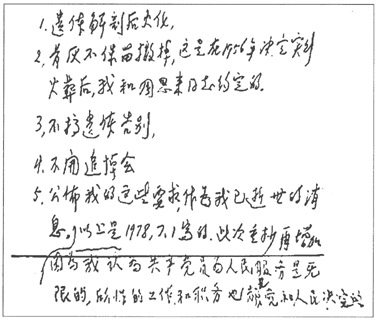 1.遗体解剖后火化,
2,骨灰不保留撒掉,这是在1956年决定实行
火葬后,我和周恩来同志约定的.
3,不搞遗体告别,
4.不开追悼会
5.公佈我的这些要求,作为我已逝世的消
息,以上是1978,7.1写的.此次重抄再增加
因为我认为共产党员为人民服务是无
限的,所作的工作和职务也都是党和人民决定的